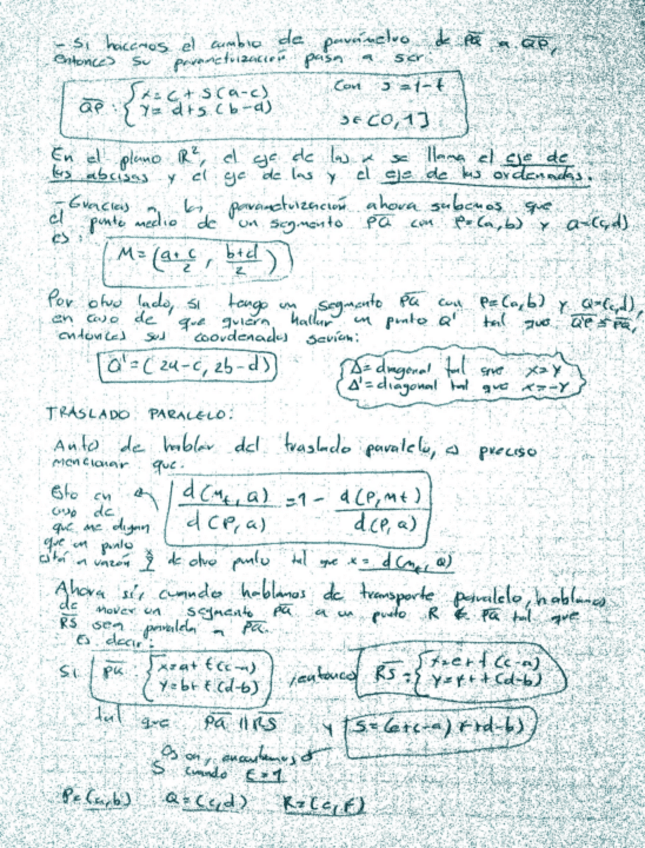 - Si hacemos el cambio de parámetro de PQ a QP,
entonces su parametrización pasa a ser
QP: { x = c + s(a-c) con s = 1-t
y = d + s(b-d) s ∈ [0,1]
En el plano R², el eje de las x se llama el eje de
las abcisas y el eje de las y el eje de las ordenadas.
- Gracias a la parametrización ahora sabemos que
el punto medio de un segmento PQ con P=(a,b) y Q=(c,d)
es:
M = (a+c/2, b+d/2)
Por otro lado, si tengo un segmento PQ con P=(a,b) y Q=(c,d),
en caso de que quiera hallar un punto Q' tal que QP ≅ PQ,
entonces sus coordenadas serían:
Q' = (2a-c, 2b-d)
Δ = diagonal tal que x=y
Δ' = diagonal tal que x=-y
TRASLADO PARALELO:
Antes de hablar del traslado paralelo, es preciso
mencionar que:
d(Mt, Q)/d(P,Q) = 1 - d(P,Mt)/d(P,Q)
Esto en
caso de
que me digan
que un punto
está a razón x/y de otro punto tal que x = d(Mt, Q)
Ahora sí, cuando hablamos de transporte paralelo, hablamos
de mover un segmento PQ a un punto R ∉ PQ tal que
RS sea paralela a PQ.
Es decir:
Si PQ: { x = a + t(c-a)
y = b + t(d-b) , entonces RS = { x = e + t(c-a)
y = f + t(d-b)
tal que PQ || RS y S = (e+c-a, f+d-b)
encontramos
S cuando t=1
P=(a,b) Q=(c,d) R=(e,f)